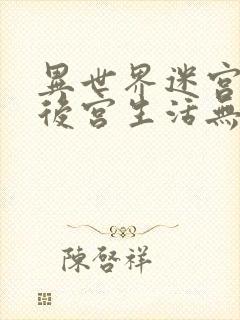 異世界迷宮
後宮生活無
陳啓祥